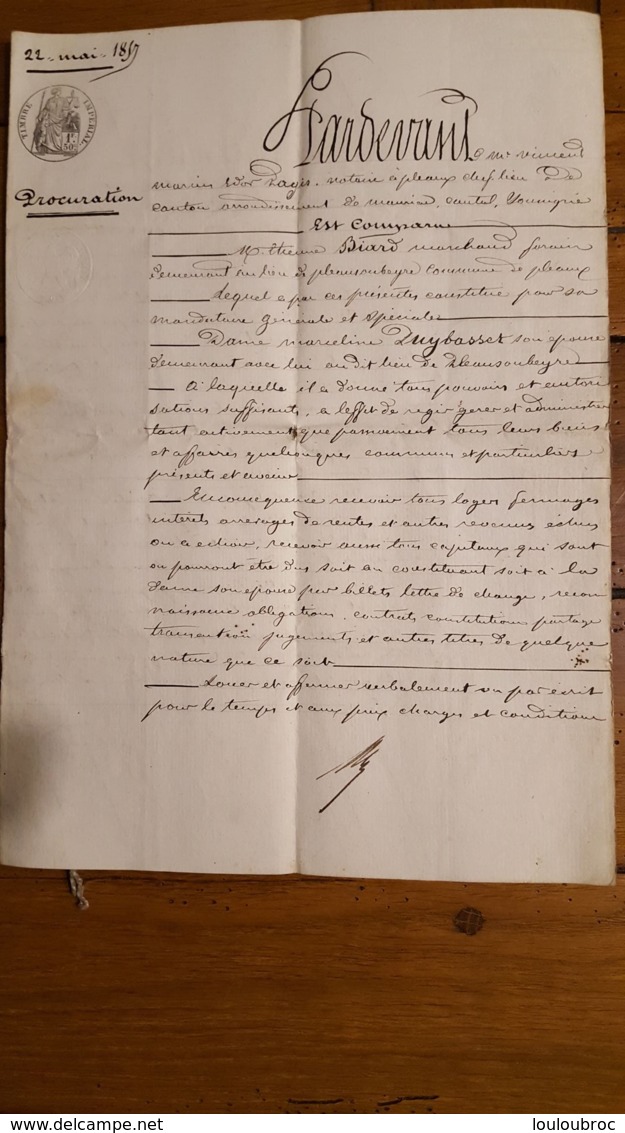 22 mai 1857
TIMBRE IMPERIAL
1F.
50c
Procuration
Pardevant Me Vincent
marius notaire à pleaux chef lieu De
canton arrondissement de mauriac, cantal, Soussigné
Est Comparu
M. Etienne Biard marchand forain
demeurant au lieu de pleausoubeyre commune de pleaux
Lequel a par ces présentes constitué pour sa
mandataire générale et spéciale
Dame marceline Puybasset son épouse
demeurant avec lui au dit lieu de Pleausoubeyre
A laquelle il a donné tous pouvoirs et autori
sations suffisants, a l'effet de régir gérer et administrer
tant activement que passivement tous leurs biens
et affaires quelconques communs et particuliers
présents et avenir
En conséquence recevoir tous loyers fermages
intérêts arrérages de rentes et autres revenus échus
ou a échoir, recevoir aussi tous capitaux qui sont
ou pourront être dus soit au constituant soit à la
dame son épouse par billets lettre de change, recon
naissance obligations, contrats constitutions partage
transaction jugements et autres titres de quelque
nature que ce soit
Louer et affermer verbalement ou par écrit
pour le temps et aux prix charges et conditions
delcampe.net
louloubroc